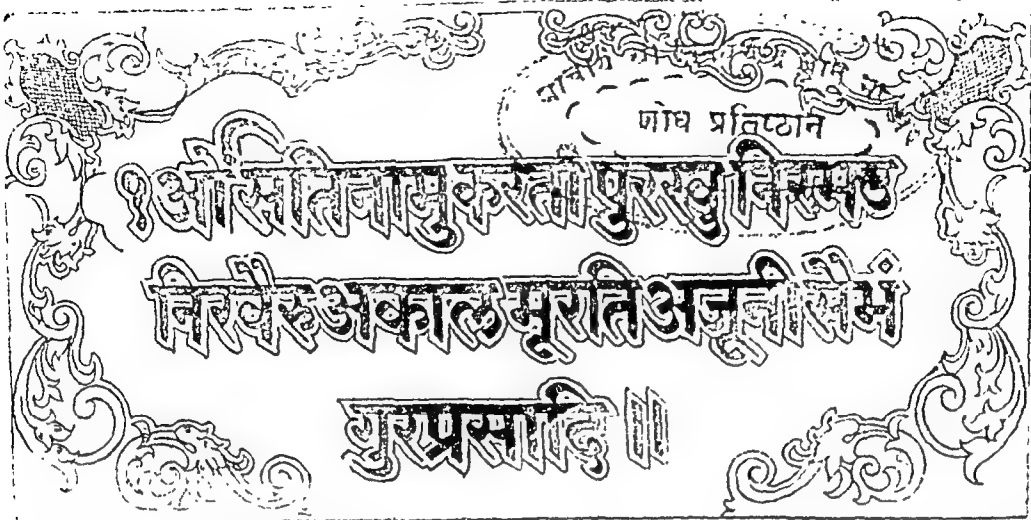 शोध प्रतिष्ठान
१ओंसतिनामु करता पुरखु निरभउ
निरवैरु अकाल मूरति अजूनी सैभं
गुरप्रसादि ॥